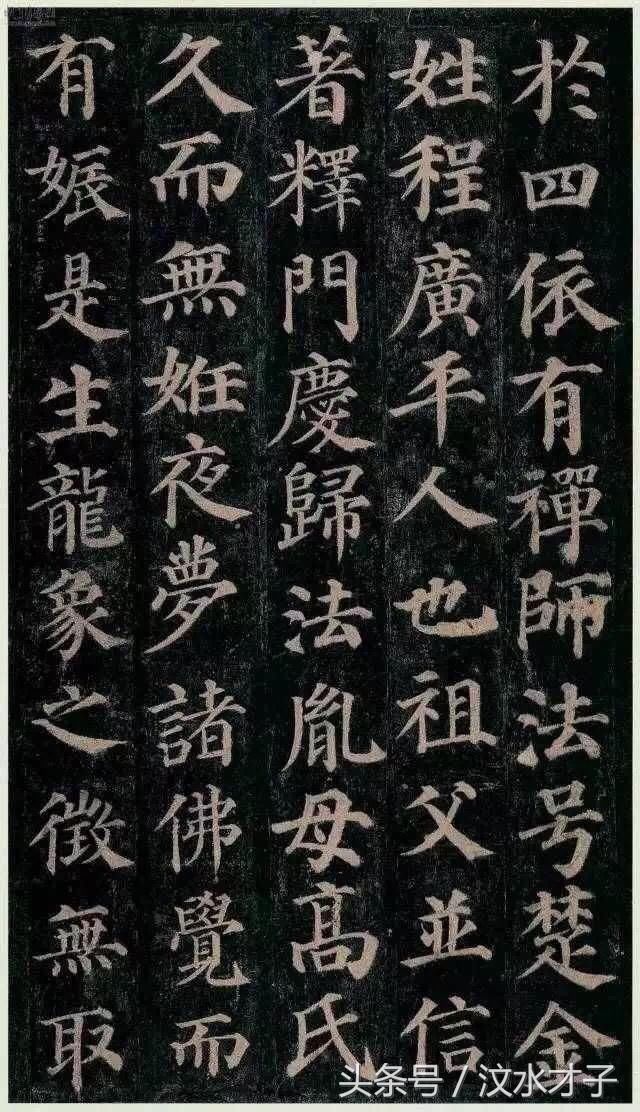 於四依有禪師法号楚金
姓程廣平人也祖父並信
著釋門慶歸法胤母髙氏
久而無姙夜夢諸佛覺而
有娠是生龍象之徵無取
头条号 / 汶水才子